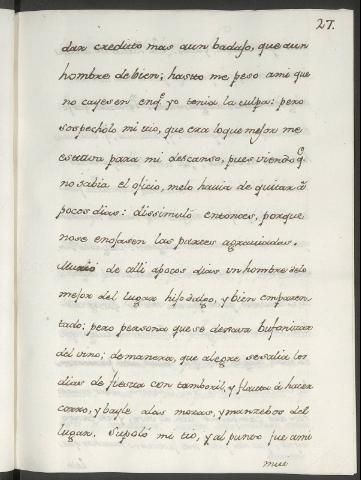 27.
dar credito mas a un badajo, que a un
hombre de bien; hasta me peso a mi que
no cayesen enq.e yo tenia la culpa: pero
sospechólo mi tio, que era loque mejor me
estava para mi descanso, pues viendo q.e
no sabia el oficio, melo havia de quitar à
pocos dias: dissimuló entonces, porque
nose enojasen las partes agraviadas.
Murió de alli apocos dias un hombre delo
mejor del lugar hijodalgo, y bien emparen
tado; pero persona que se dexava bufonizar
del vino; de manera, que alegre se salia los
dias de fiesta con tamboril, y flauta à hacer
corro, y bayle alas mozas, y manzebos del
lugar. Supoló mi tio, y al punto fue ami
mue